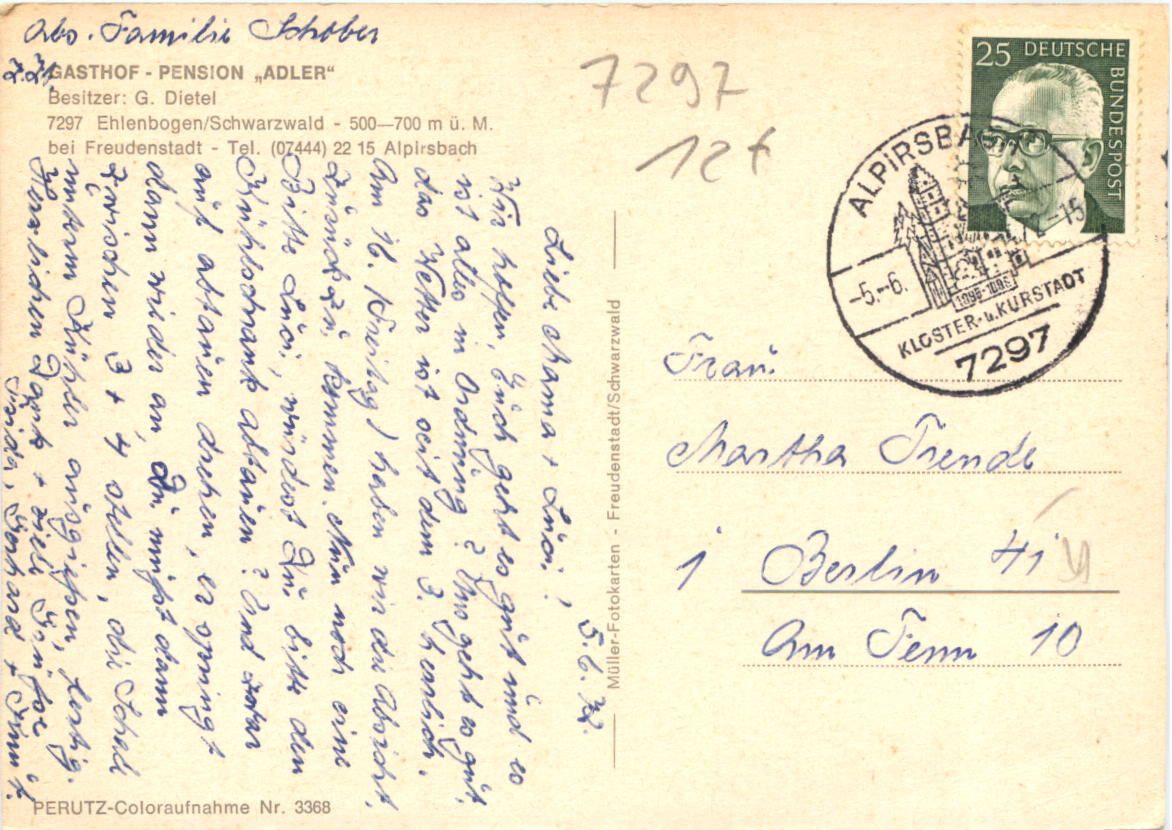 Abs. Familie Schober
z.Zt.
GASTHOF - PENSION „ADLER“
Besitzer: G. Dietel
7297 Ehlenbogen/Schwarzwald - 500—700 m ü. M.
bei Freudenstadt - Tel. (07444) 22 15 Alpirsbach
7297
12f
25 DEUTSCHE BUNDESPOST
ALPIRSBACH
-5.-6. 72-15
1095-1095
KLOSTER-u.KURSTADT
7297
5.6.72.
Liebe Mama + Luci!
Wir hoffen, Euch geht es gut und es
ist alles in Ordnung? Uns geht es gut,
das Wetter ist seit dem 3. herrlich.
Am 16. (Freitag) haben wir die Absicht,
zurück zu kommen. Nun noch eine
Bitte Luci, würdest Du bitte den
Kühlschrank abtauen? Und zwar
auf abtauen drehen, er springt
dann wieder an, Du mußt dann
zwischen 3 + 4 stellen, die Schale
unterm Kühler ausgießen, fertig.
Herzlichen Dank + viele Grüße
Frida, Gerhard +
Müller-Fotokarten - Freudenstadt/Schwarzwald
Frau
Martha Trende
1 Berlin 41
Am Fenn 10
PERUTZ-Coloraufnahme Nr. 3368